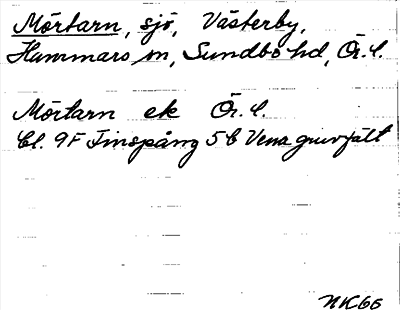 Mörtarn, sjö, Västerby,
Hammars sn, Sundbo hd, Ör. l.
Mörtarn ek Ör. l.
Bl. 9F Finspång 5 b Vena gruvfält
NK66